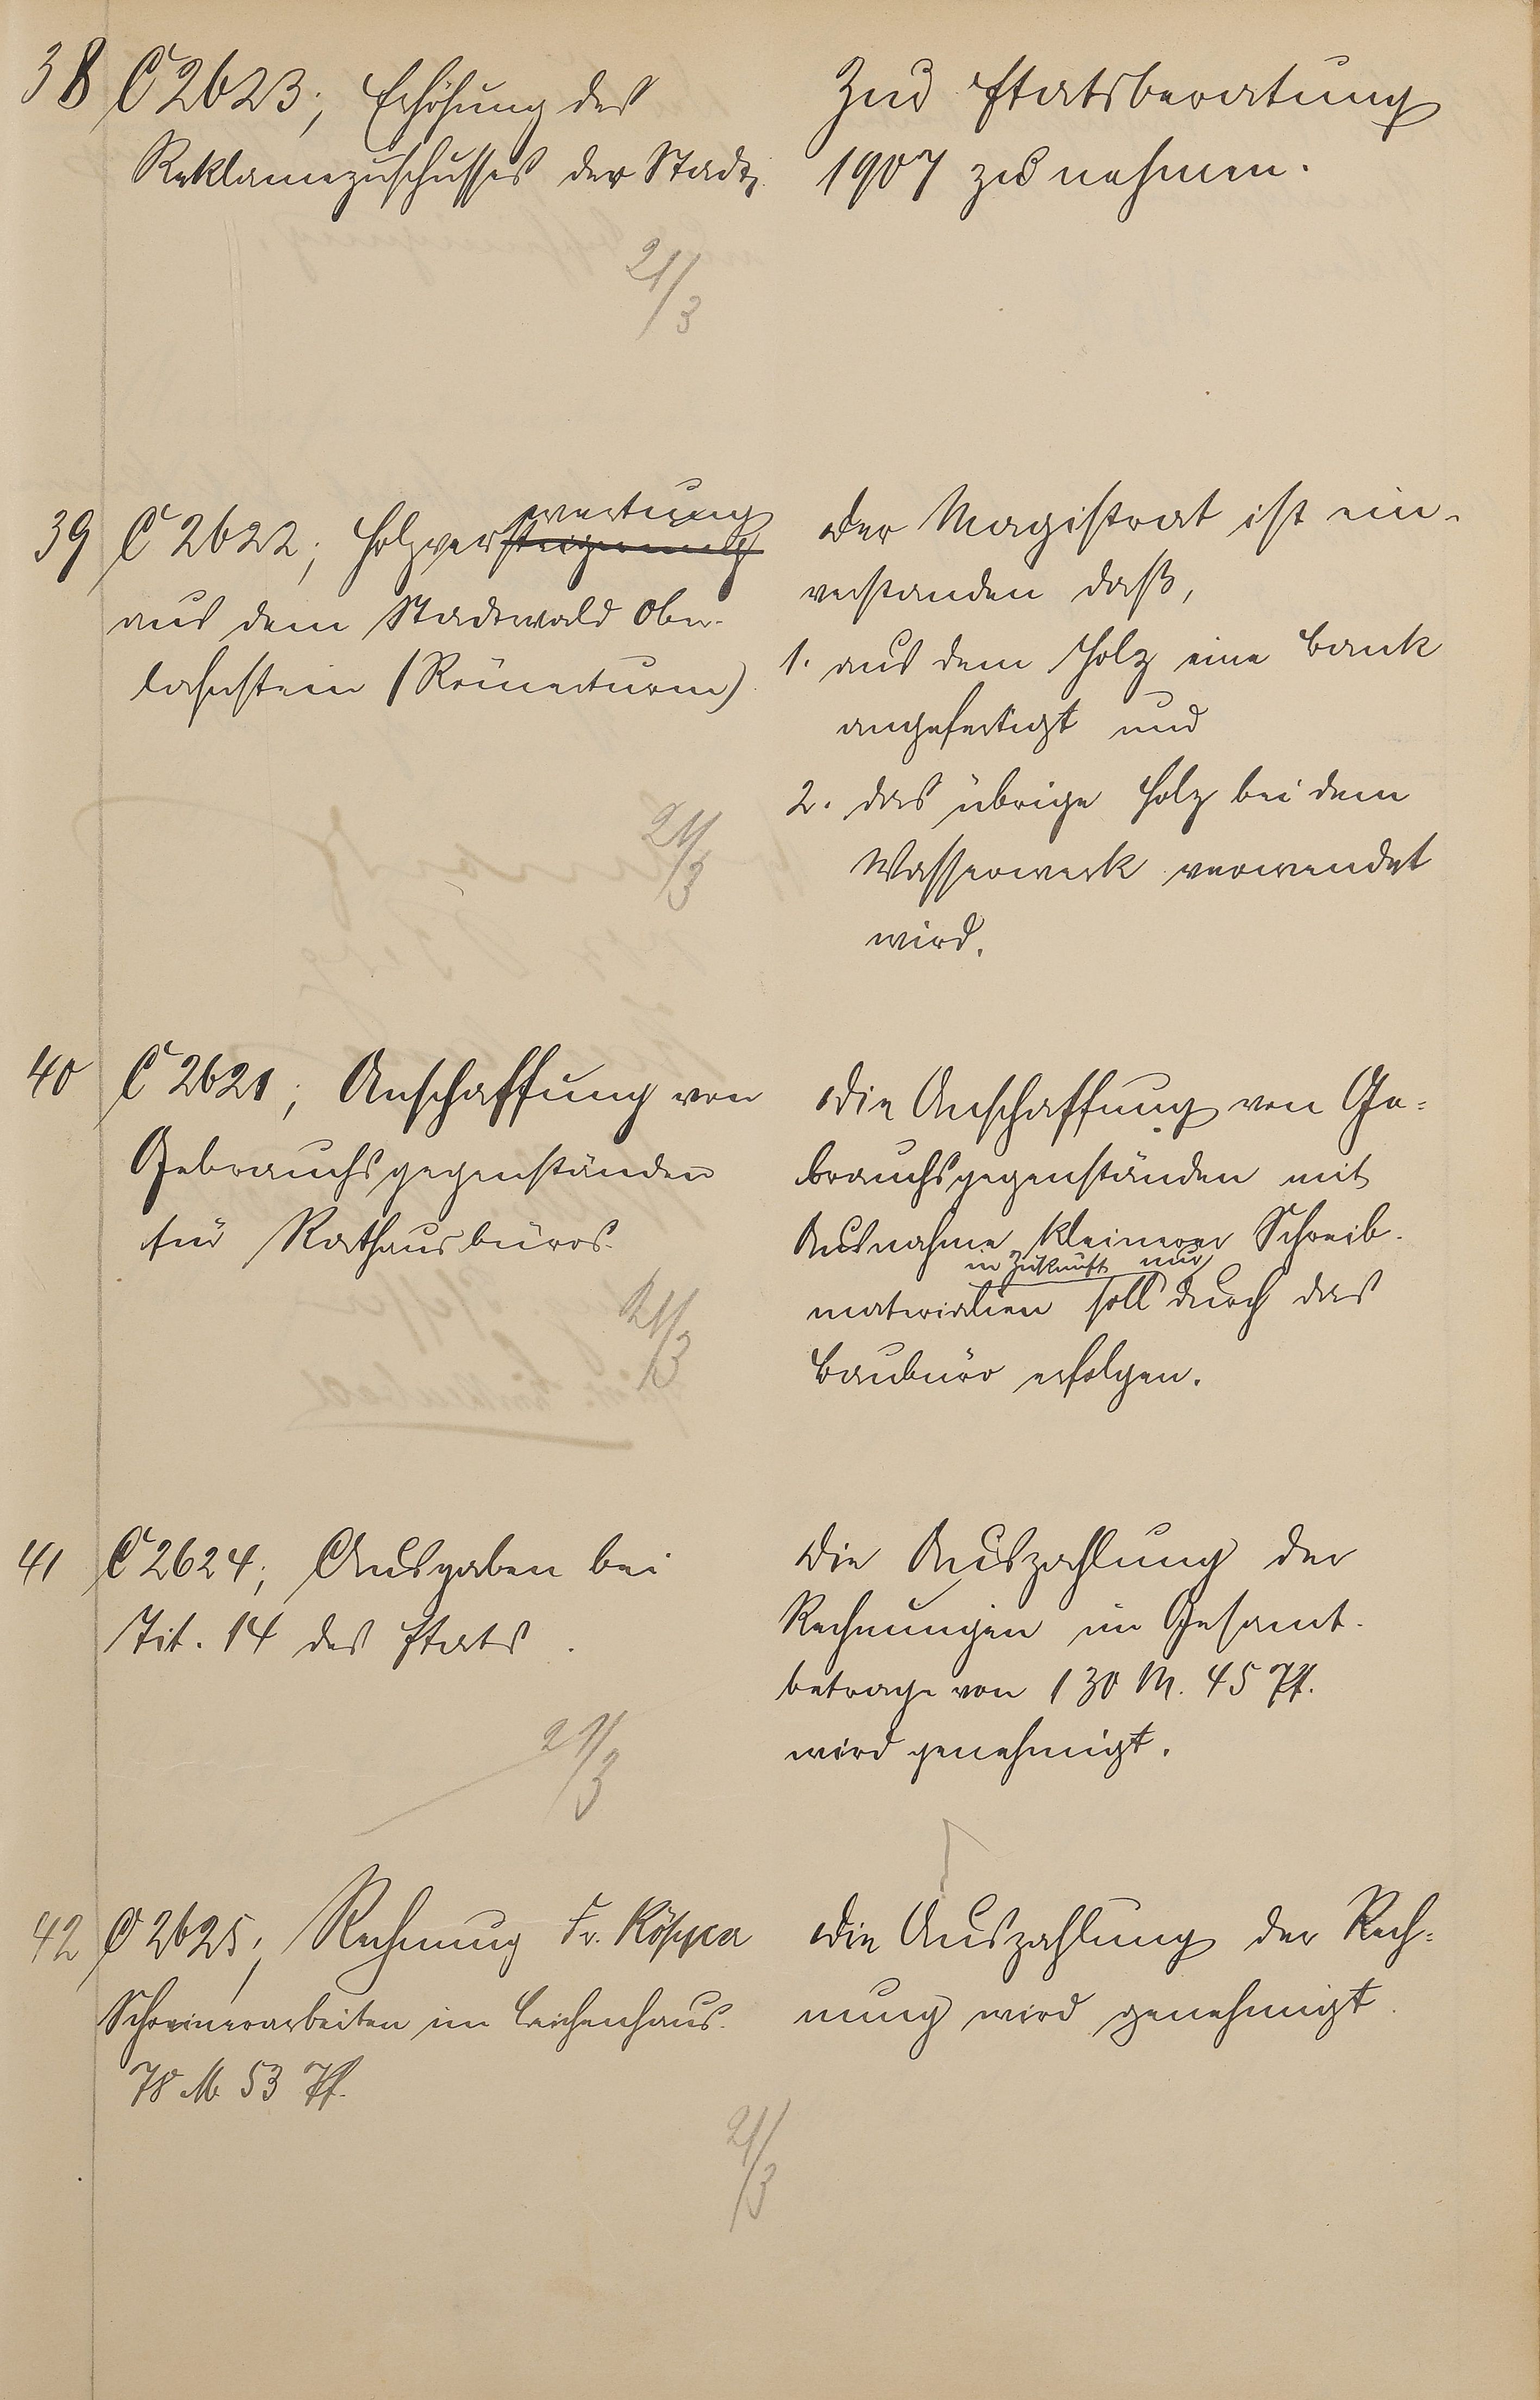 38 C 2623; Erhöhung des
Reklamezuschusses der Stadt.
21/3
Zur Etatsberatung
1907 zu nehmen.
39 C 2622; Holzversteigerung
wertung
aus dem Stadtwald Ober-
lahnstein (Römerturm)
21/3
Der Magistrat ist ein-
verstanden daß,
1. aus dem Holz eine Bank
angefertigt und
2. das übrige Holz bei dem
Wasserwerk verwendet
wird.
40 C 2621; Anschaffung von
Gebrauchsgegenständen
für Rathausbüros.
21/3
Die Anschaffung von Ge-
brauchsgegenständen mit
Ausnahme kleinerer Schreib-
in Zukunft nur
materialien soll durch das
Baubüro erfolgen.
41 C 2624; Ausgaben bei
Tit. 14 des Etats.
21/3
Die Auszahlung der
Rechnungen im Gesamt-
betrage von 130 M. 45 Pf.
wird genehmigt.
42 C 2625; Rechnung Fr. Köppen
Schreinerarbeiten im Leichenhaus.
78 M 53 Pf.
21/3
Die Auszahlung der Rech-
nung wird genehmigt.